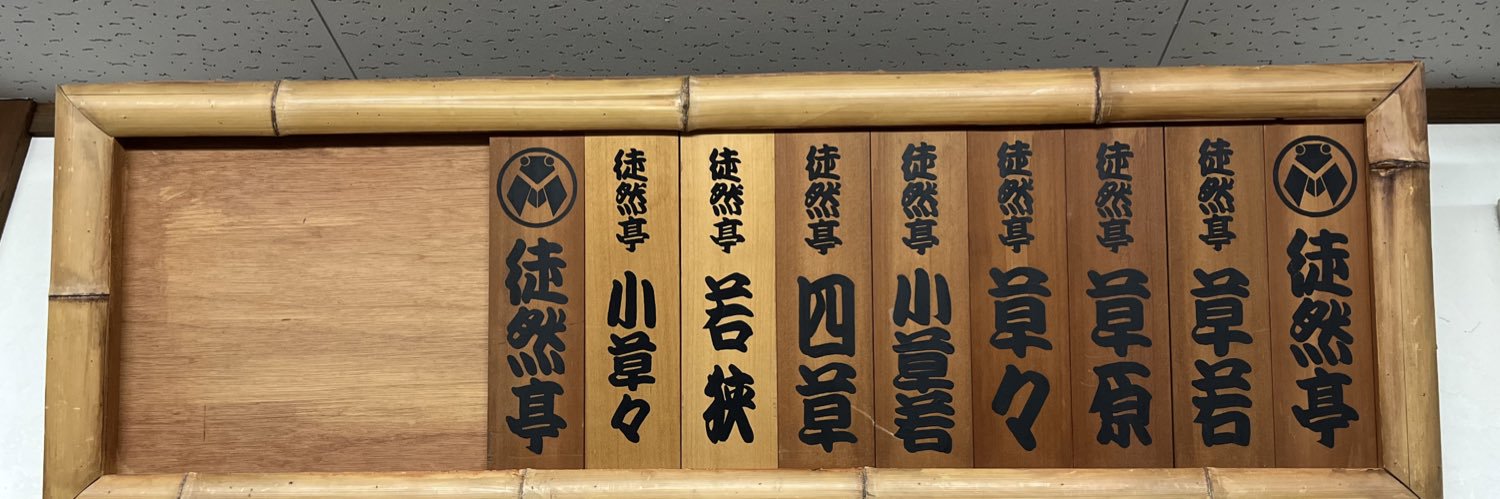 徒然亭
徒然亭 草若
徒然亭 草原
徒然亭 草々
徒然亭 小草若
徒然亭 四草
徒然亭 若狭
徒然亭 小草々
徒然亭